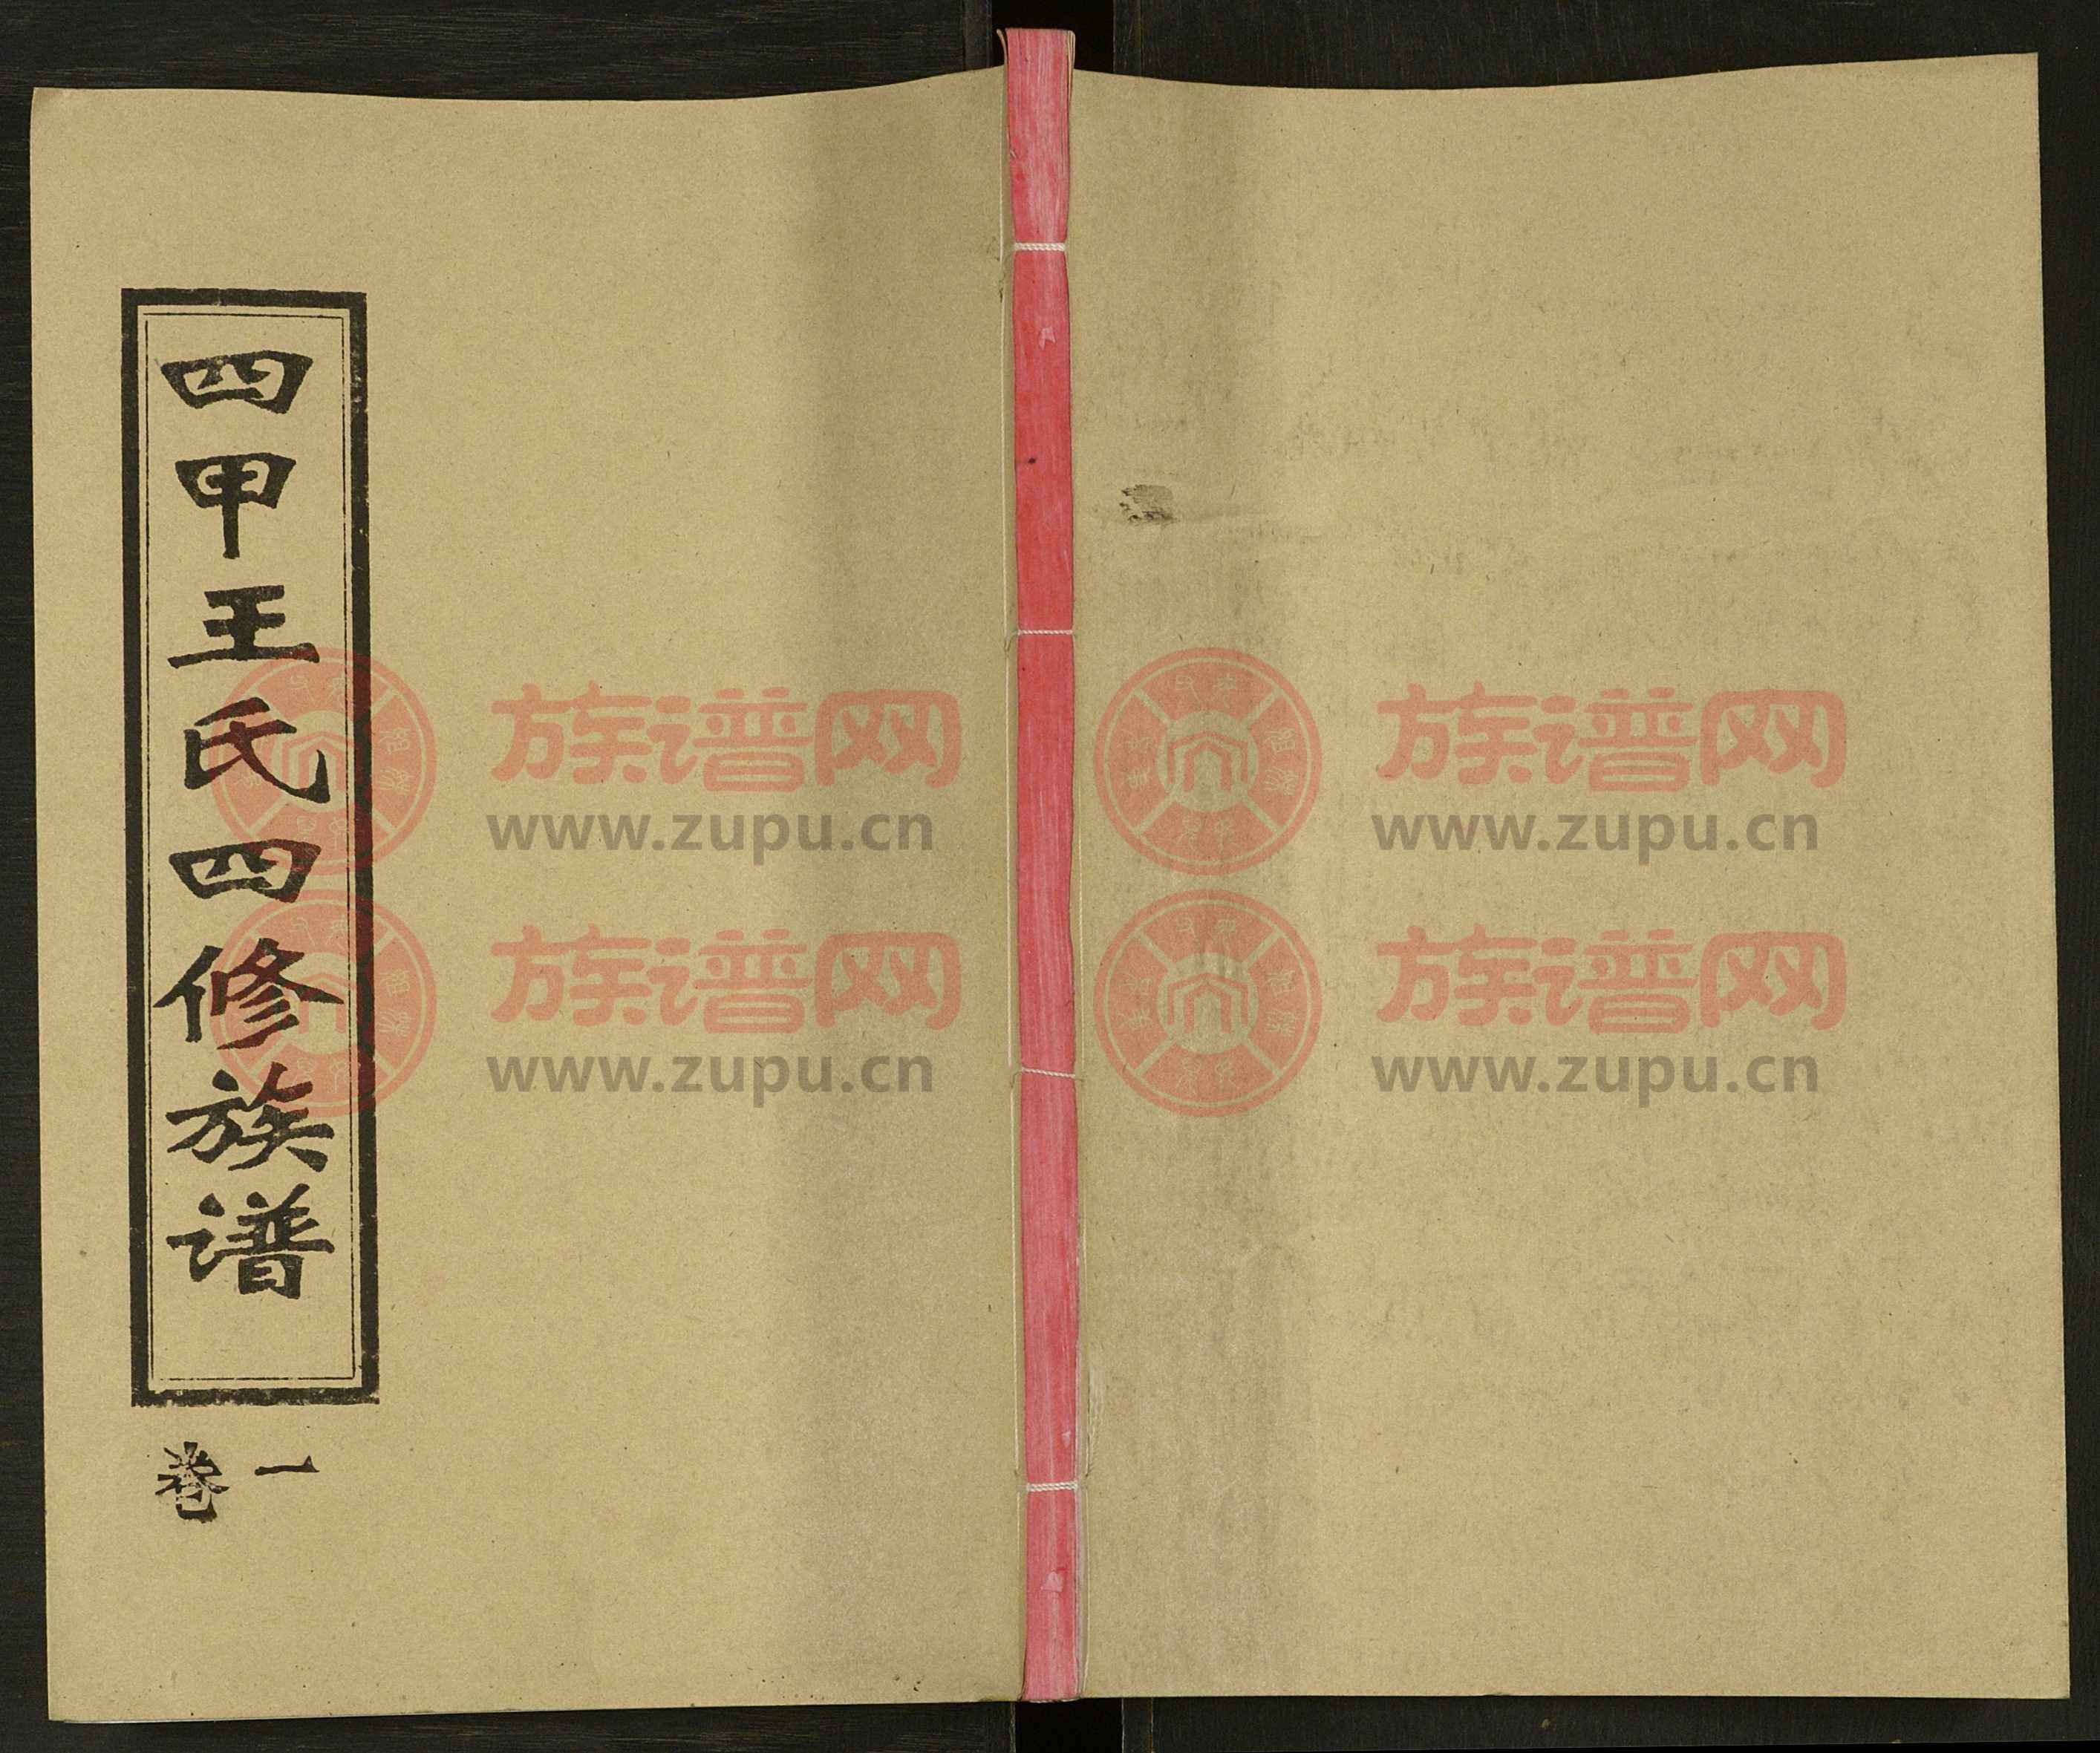 四甲王氏四修族谱
卷一
族谱网
www.zupu.cn
族谱网
www.zupu.cn
族谱网
www.zupu.cn
族谱网
www.zupu.cn